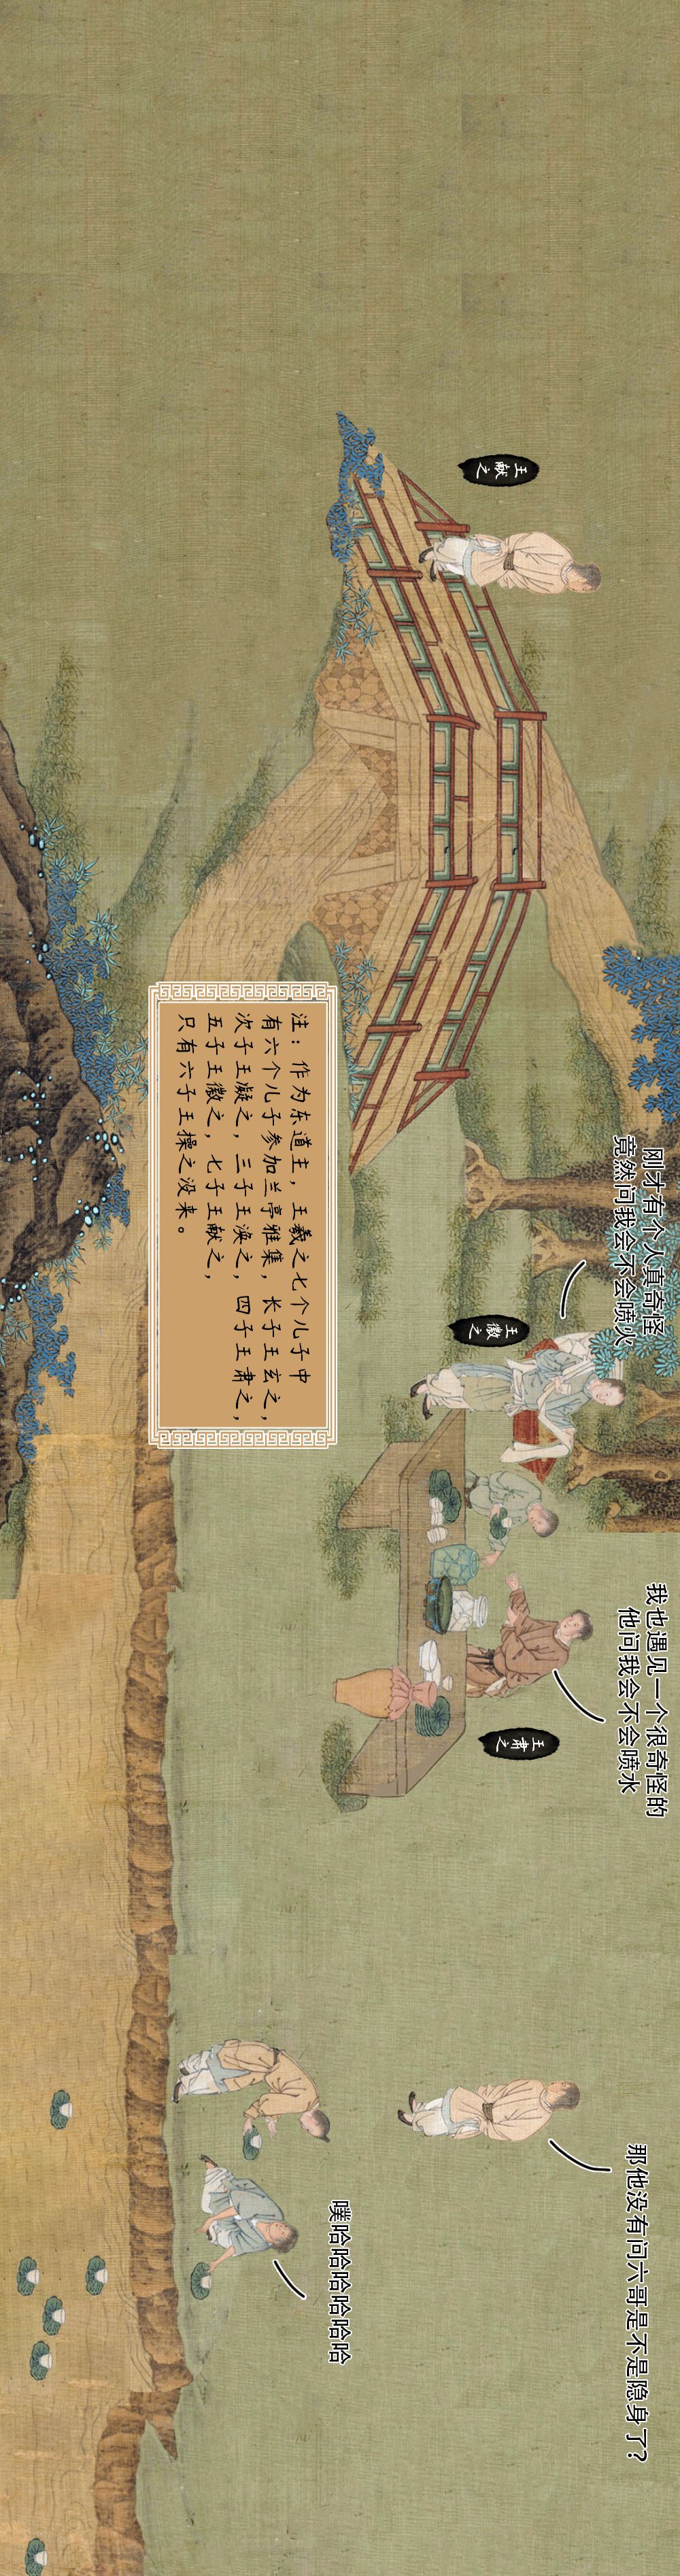 王献之
注：作为东道主，王羲之七个儿子中
有六个儿子参加兰亭雅集，长子王玄之，
次子王凝之，三子王涣之，四子王肃之，
五子王徽之，七子王献之，
只有六子王操之没来。
刚才有个人真奇怪
竟然问我会不会喷火
王徽之
我也遇见一个很奇怪的
他问我会不会喷水
王肃之
那他没有问六哥是不是隐身了?
噗哈哈哈哈哈哈